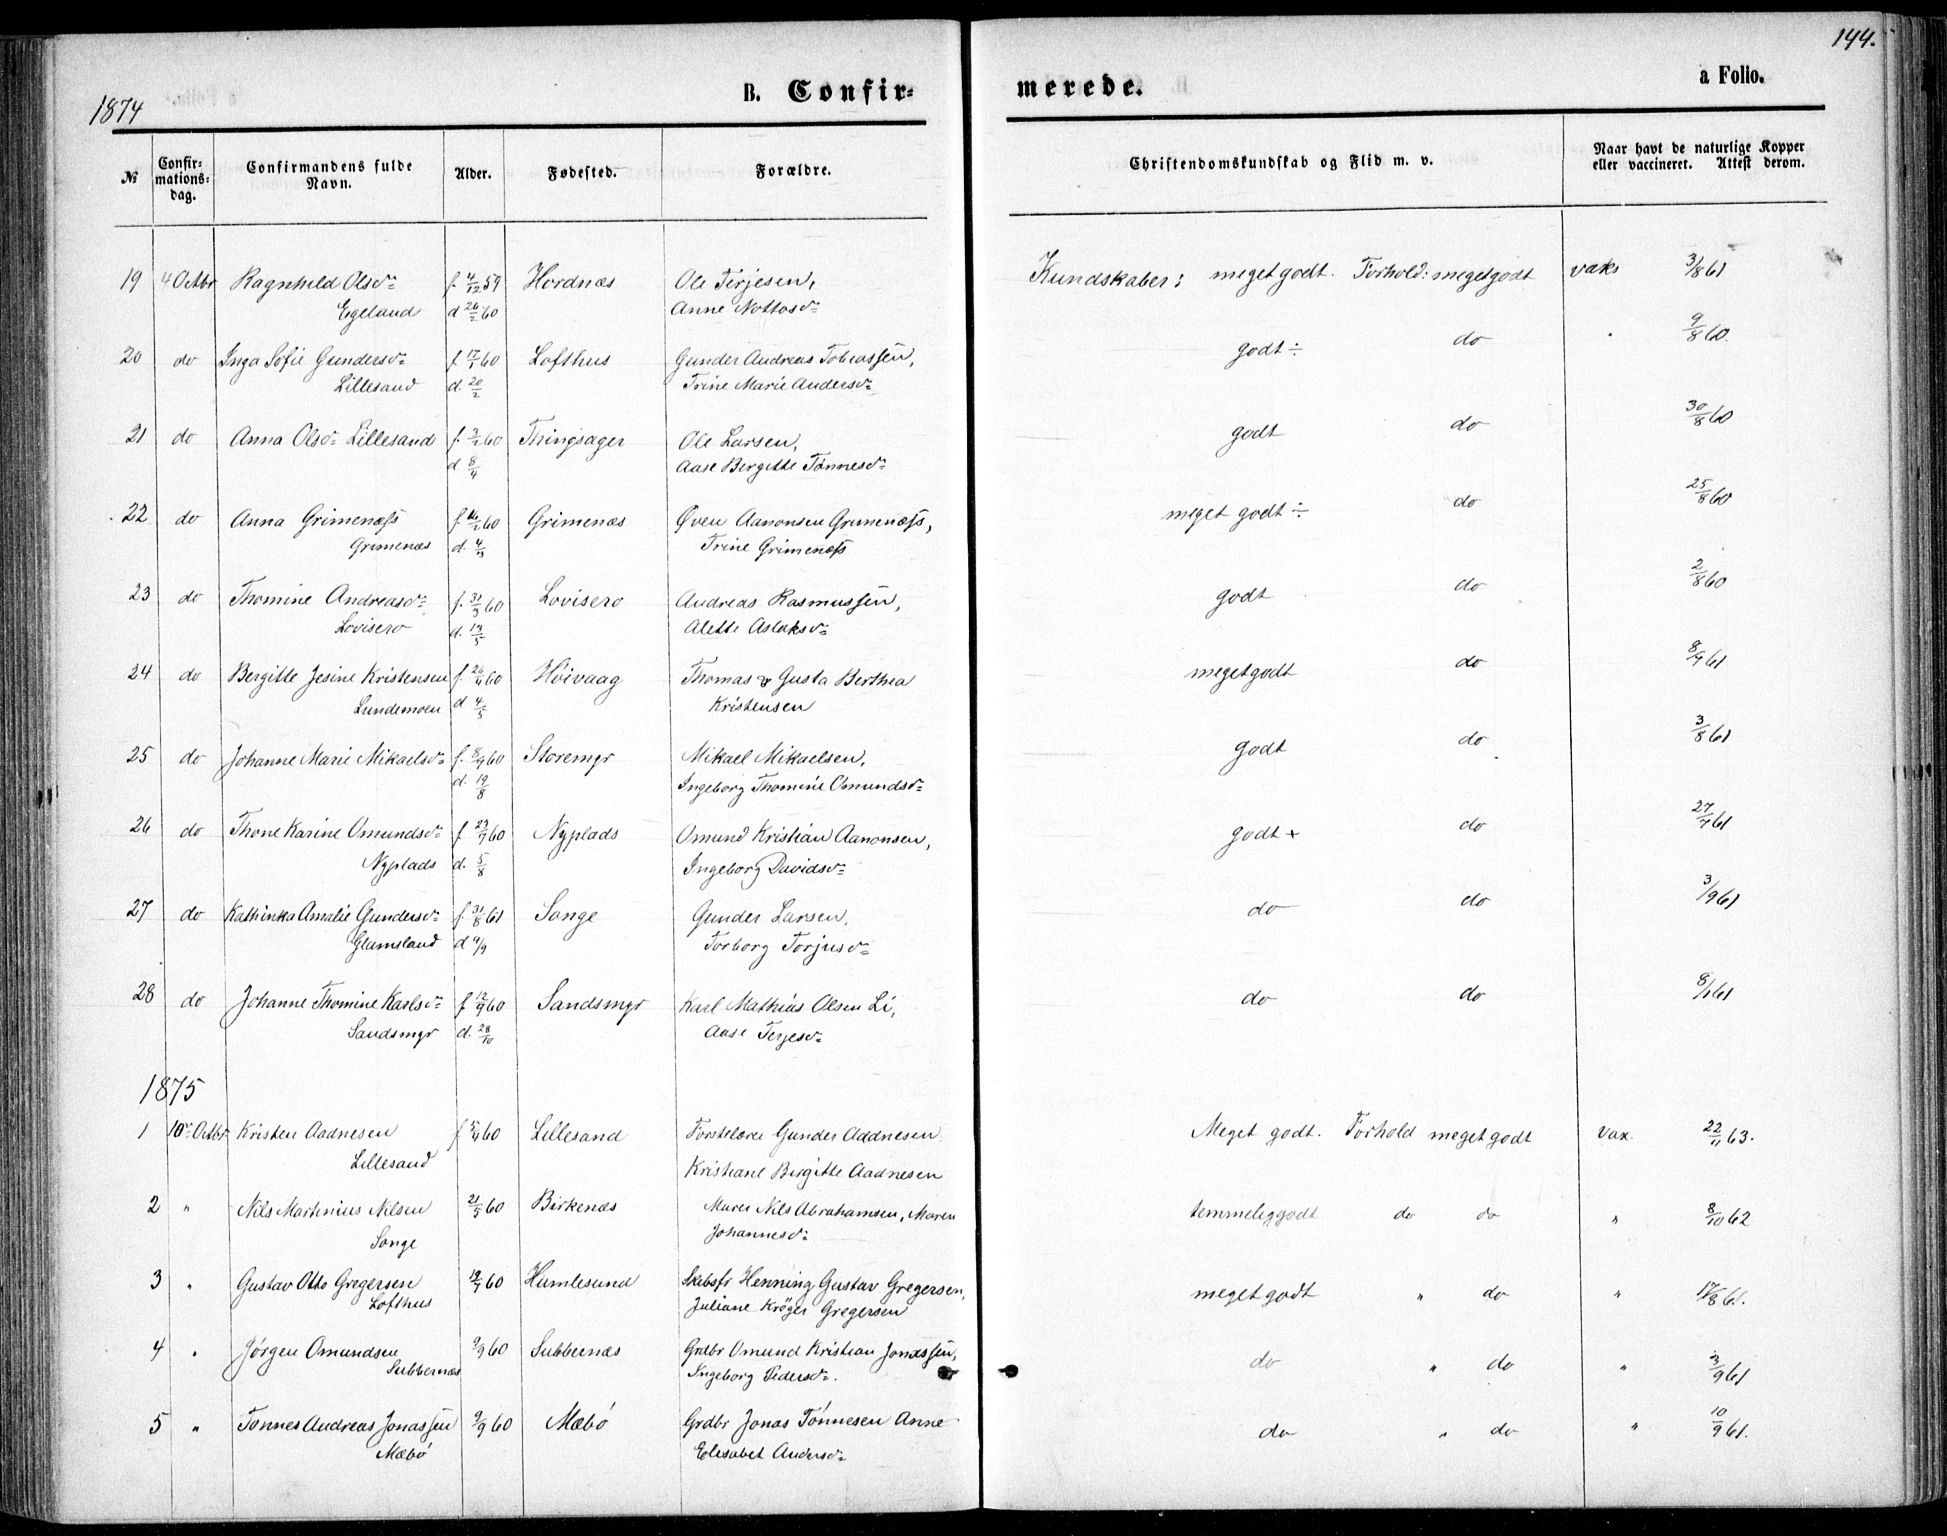 144.
1874
B. Confir=
merede.
a Folio.
№
Confir=
mations=
dag.
Confirmandens fulde
Navn.
Alder.
Fødested.
Forældre.
Christendomskundskab og Flid m. v.
Naar havt de naturlige Kopper
eller vaccineret. Attest derom.
19 4 Octbr Ragnhild Olsdr f. 4/12 59 Hordnæs Ole Terjesen, Kundskaber: meget godt. Forhold: meget godt vaks 3/8 61
Egeland d 26/2 60 Anne Nottosdr
20 do Inga Sofie Gundersdr f. 17/1 60 Lofthus Gunder Andreas Tobiassen, godt ÷ do 9/8 60.
Lillesand d. 20/2 Trine Marie Andersdr
21 do Anna Olsdr Lillesand f. 3/2 60 Thingsager Ole Larsen, godt do 30/8 60
d 8/4 Aase Bergitte Tønnesdr
22 do Anna Grimenæss f. 60 Grimenæs Øven Aanonsen Grimenæss, meget godt ÷ do 25/8 60
Grimenæs d. Trine Grimenæss
23 do Thomine Andreasdr f. 31/3 60 Lovisero Andreas Rasmussen, godt do 2/8 60
Lovisero d. 13/5 Alette Aslaksdr
24 do Bergitte Jesine Kristensen f. 26/4 60 Høivaag Thomas & Gusta Berthea meget godt do 8/9 61
Lundemoen d 4/5 Kristensen
25 do Johanne Marie Mikaelsdr f. 60 Storemyr Mikael Mikaelsen, godt do 3/8 61
d. 19/8 Ingeborg Thomine Omundsdr
26 do Thone Karine Omundsdr f 23/7 60 Nyplads Omund Kristian Aanonsen, godt + do 27/7 61
Nyplads d. 5/8 Ingeborg Davidsdr
27 do Kathinka Amalie Gundersdr f. 31/8 61 Songe Gunder Larsen, do do 3/9 61
Glamsland d 9/9 Torborg Torjusdr
28 do Johanne Thomine Karlsdr f 12/9 60 Sandsmyr Karl Mathias Olsen Li, do do 8/1 61
Sandsmyr d. 28/10 Aase Terjesdr
1875
1 10de Octbr Kristen Aadnesen f 5/4 60 Lillesand Gunder Aadnesen Meget godt. Forhold meget godt vax. 22/11 63.
Lillesand Kristiane Birgitte Aadnesen
2 " Nils Martinius Nilsen 21/5 60 Birkenæs Murer Nils Abrahamsen, Maren temmelig godt do do " 8/10 62
Songe Johannesdr
3 " Gustav Otto Gregersen 19/7 60 Humlesund Skibsfr Henning Gustav Gregersen, meget godt " do " 17/8 61.
Lofthus Juliane Krøger Gregersen
4 " Jørgen Omundsen 9/9 60 Subbernæs Grdbr Omund Kristian Jonassen, do " do " 3/9 61
Subbernæs Ingeborg Pedersdr.
5 " Tønnes Andreas Jonassen 9/9 60 Mæbø Grdbr Jonas Tønnesen Anne do " do " 10/9 61.
Mæbø Elisabet Andersdr